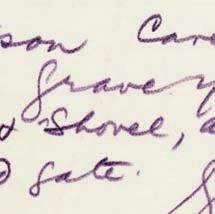 son Care
Gravey
& Shovel, a
gate.